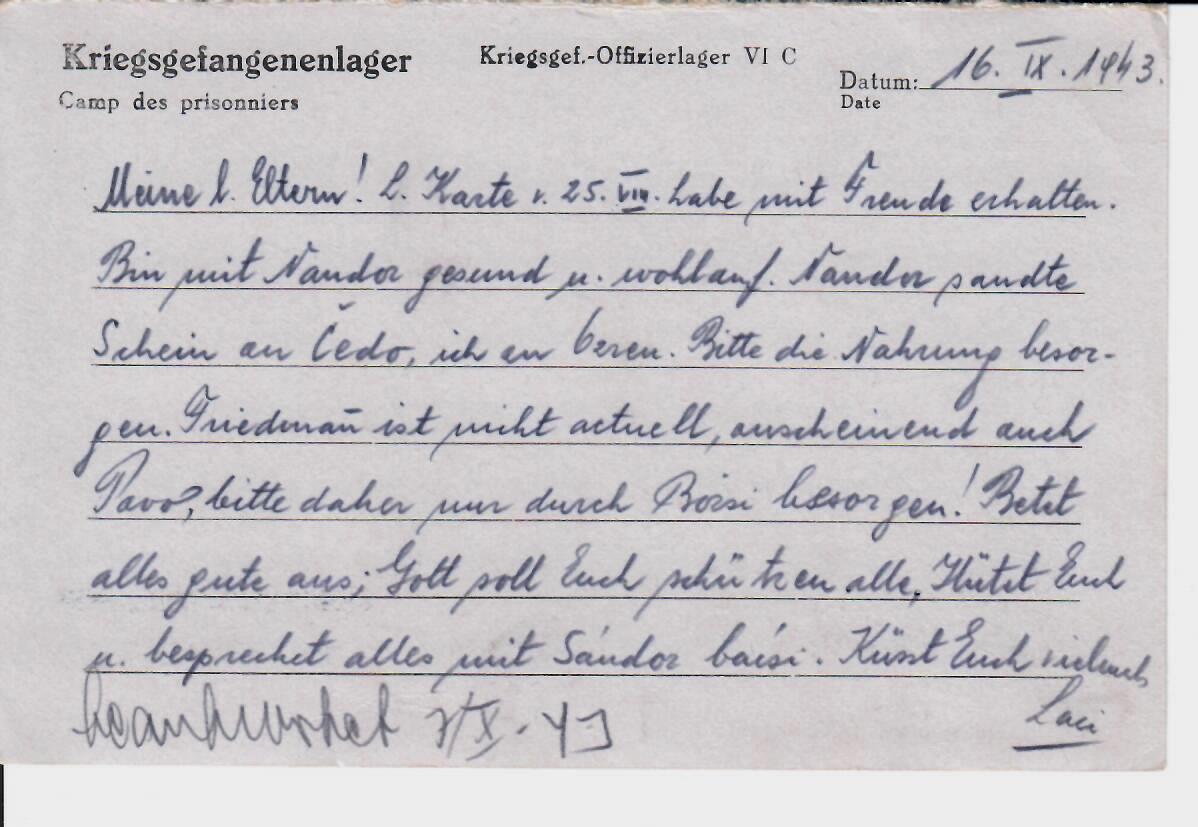 Kriegsgefangenenlager
Camp des prisonniers
Kriegsgef.-Offizierlager VI C
Datum: 16. IX. 1943.
Date
Meine l. Eltern! L. Karte v. 25. VIII. habe mit Freude erhalten.
Bin mit Nandor gesund u. wohlauf. Nandor sandte
Schein an Čedo, ich an Beren. Bitte die Nahrung besor-
gen. Friedman̄ ist nicht actuell, anscheinend auch
Pavo, bitte daher nur durch Börsi besorgen! Betet
alles gute aus; Gott soll Euch schützen alle, Hütet Euch
u. besprechet alles mit Sándor bácsi. Küsst Euch vielmals
Laci
beantwortet 7/X - 43